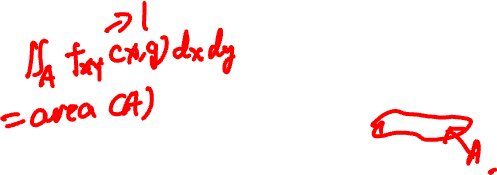 → 1
∬_A f_{XY}(x,y) dx dy
= area (A)
A